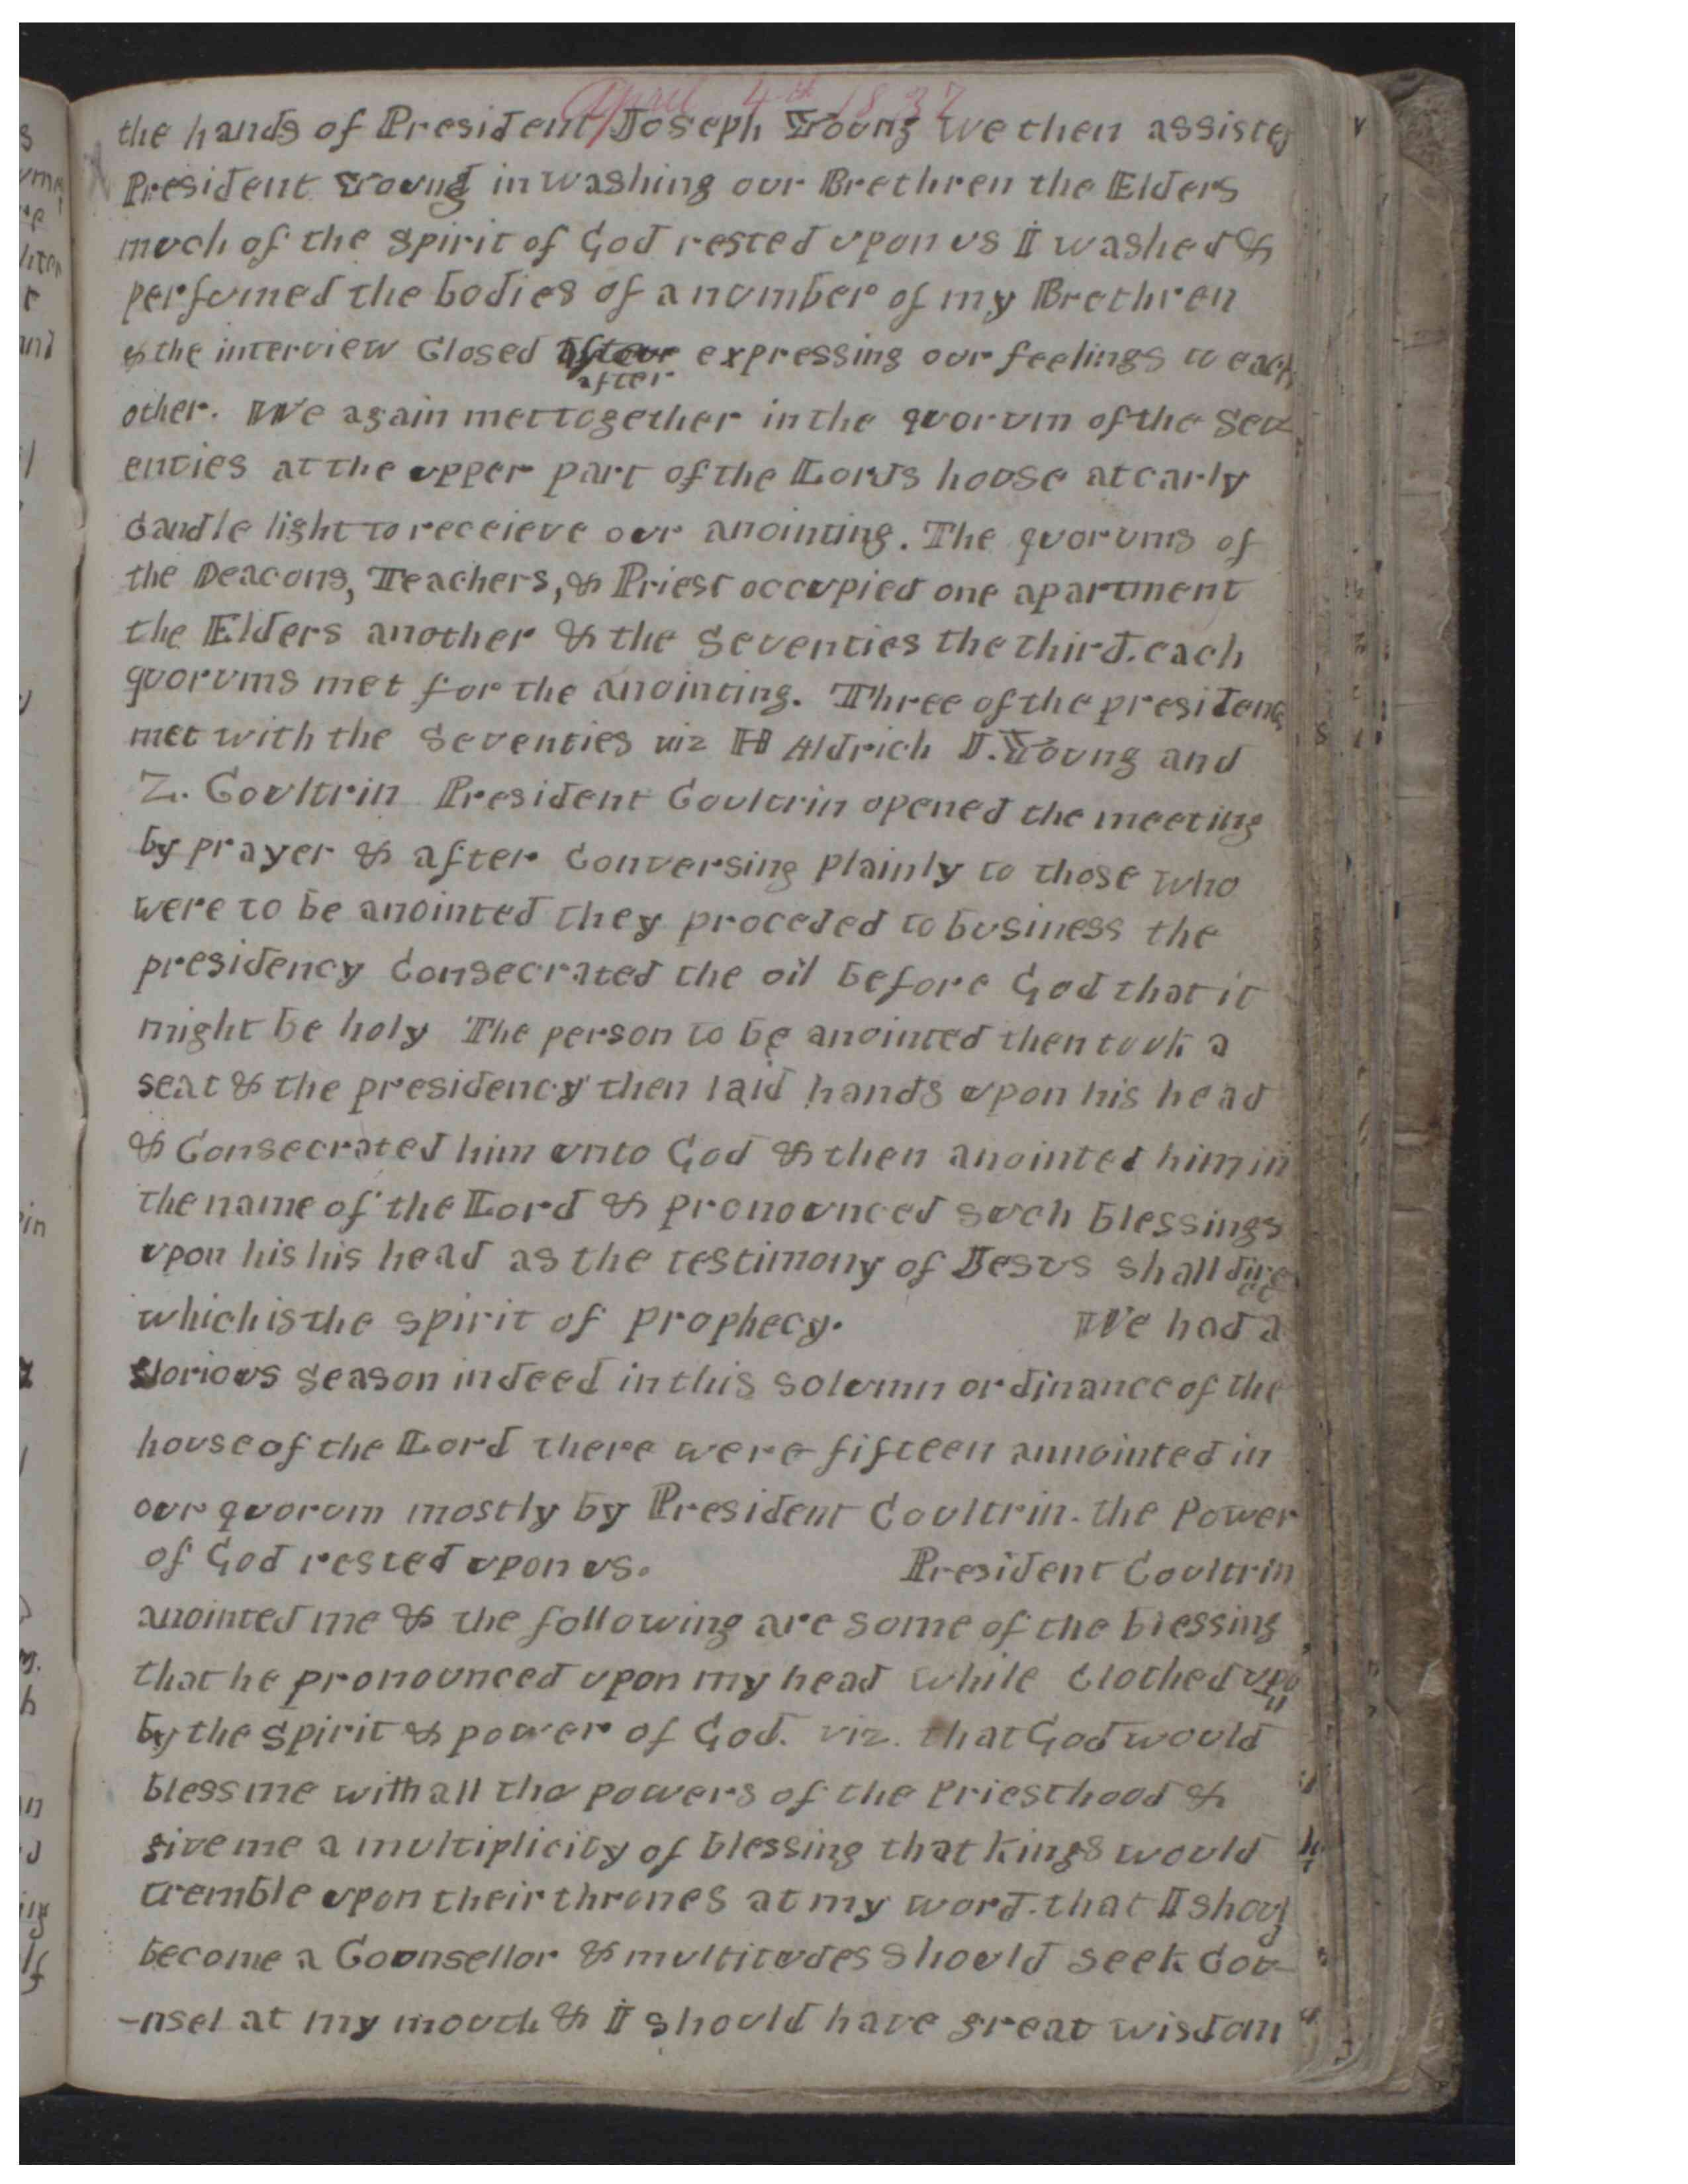 April 4th 1837
the hands of President Joseph Young We then assisted
President Young in washing our Brethren the Elders
much of the spirit of God rested upon us I washed &
perfumed the bodies of a number of my Brethren
& the interview Closed after expressing our feelings to each
after
other. We again met together in the quorum of the Sev
enties at the upper part of the Lords house at early
Candle light to receieve our anointing. The quorums of
the Deacons, Teachers, & Priest occupied one apartment
the Elders another & the Seventies the third. each
quorums met for the anointing. Three of the presidency
met with the Seventies viz H Aldrich J. Young and
Z. Coultrin President Coultrin opened the meeting
by prayer & after Conversing plainly to those who
were to be anointed they proceded to business the
presidency Consecrated the oil before God that it
might be holy The person to be anointed then took a
seat & the presidency then laid hands upon his head
& Consecrated him unto God & then anointed him in
the name of the Lord & pronounced such blessings
upon his his head as the testimony of Jesus shall direct
which is the spirit of prophecy. We had a
glorious season indeed in this solumn ordinance of the
house of the Lord there were fifteen annointed in
our quorum mostly by President Coultrin. the Power
of God rested upon us. President Coultrin
anointed me & the following are some of the blessing
that he pronounced upon my head while Clothed upon
by the spirit & power of God. viz. that God would
bless me with all the powers of the Priesthood &
give me a multiplicity of blessing that Kings would
tremble upon their thrones at my word. that I should
become a Counsellor & multitudes should seek Cou-
-nsel at my mouth & I should have great wisdom